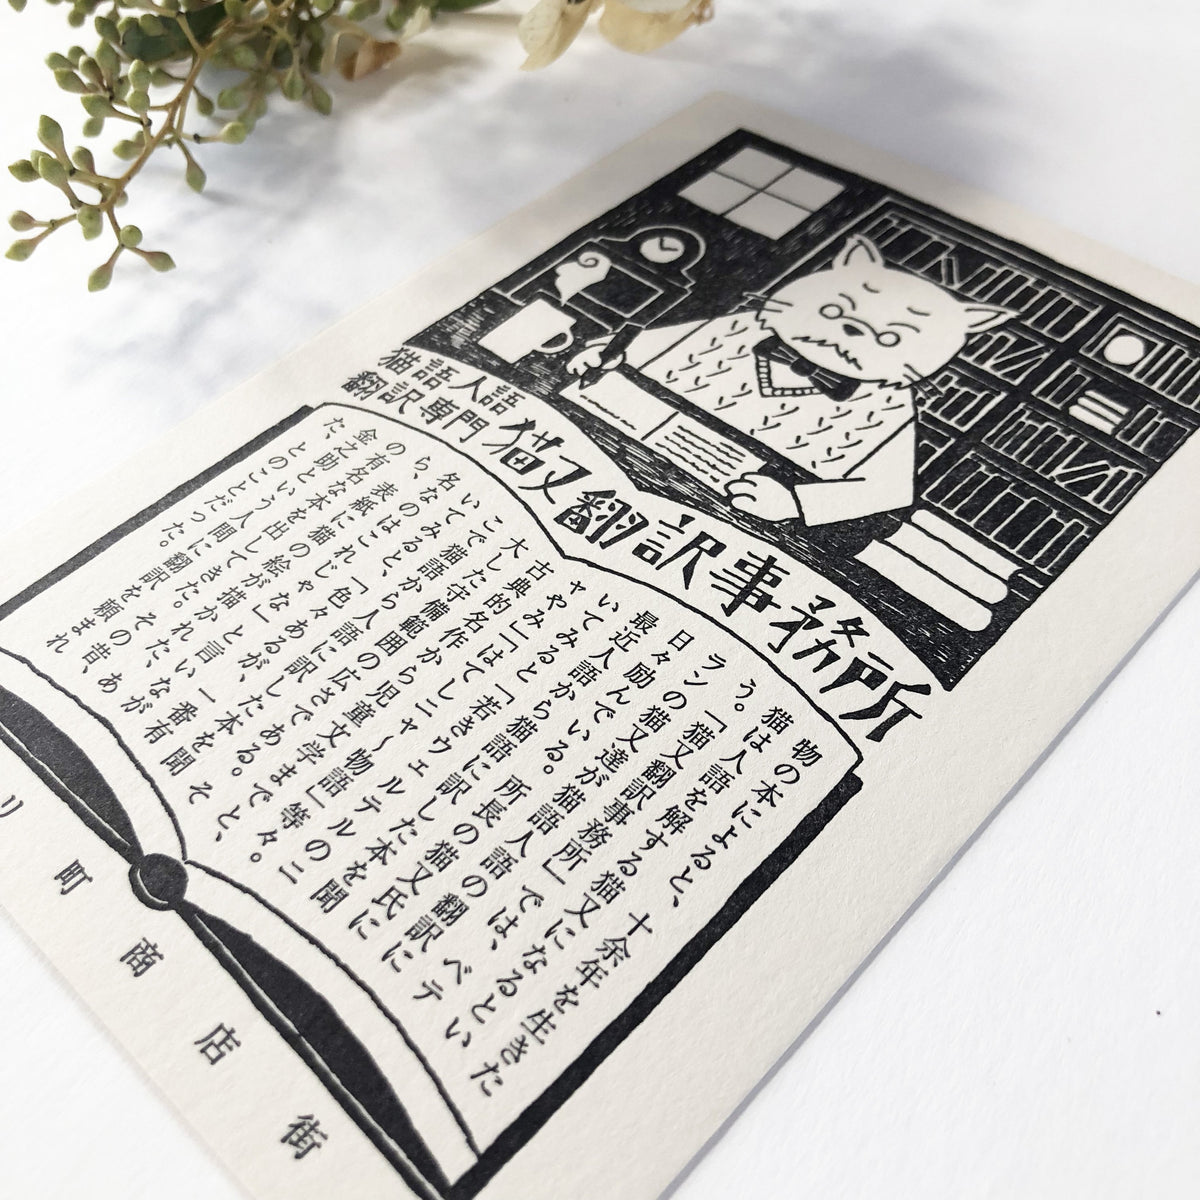 猫語人語
翻訳専門
猫又翻訳事務所
物の本によると、十余年を生きた
猫は人語を解する猫又になるとい
う。
「猫又翻訳事務所」では、ベテ
ランの猫又達が猫語人語の翻訳に
日々励んでいる。所長の猫又氏に
最近人語から猫語に訳した本を聞
いてみると「若きニャウェルテルのニ
ャやみ」「はてしニャ〜物語」等々。
古典的名作から児童文学まで、
大した守備範囲の広さである。そ
こで猫語から人語に訳した本を聞
いてみると「色々あるが、一番有
名なのはこれじゃな」と言いなが
ら、表紙に猫の絵が描かれた、あ
の有名な本を出してきた。その昔、
金之助という人間に翻訳を頼まれ
たとのことだった。
リ町商店街